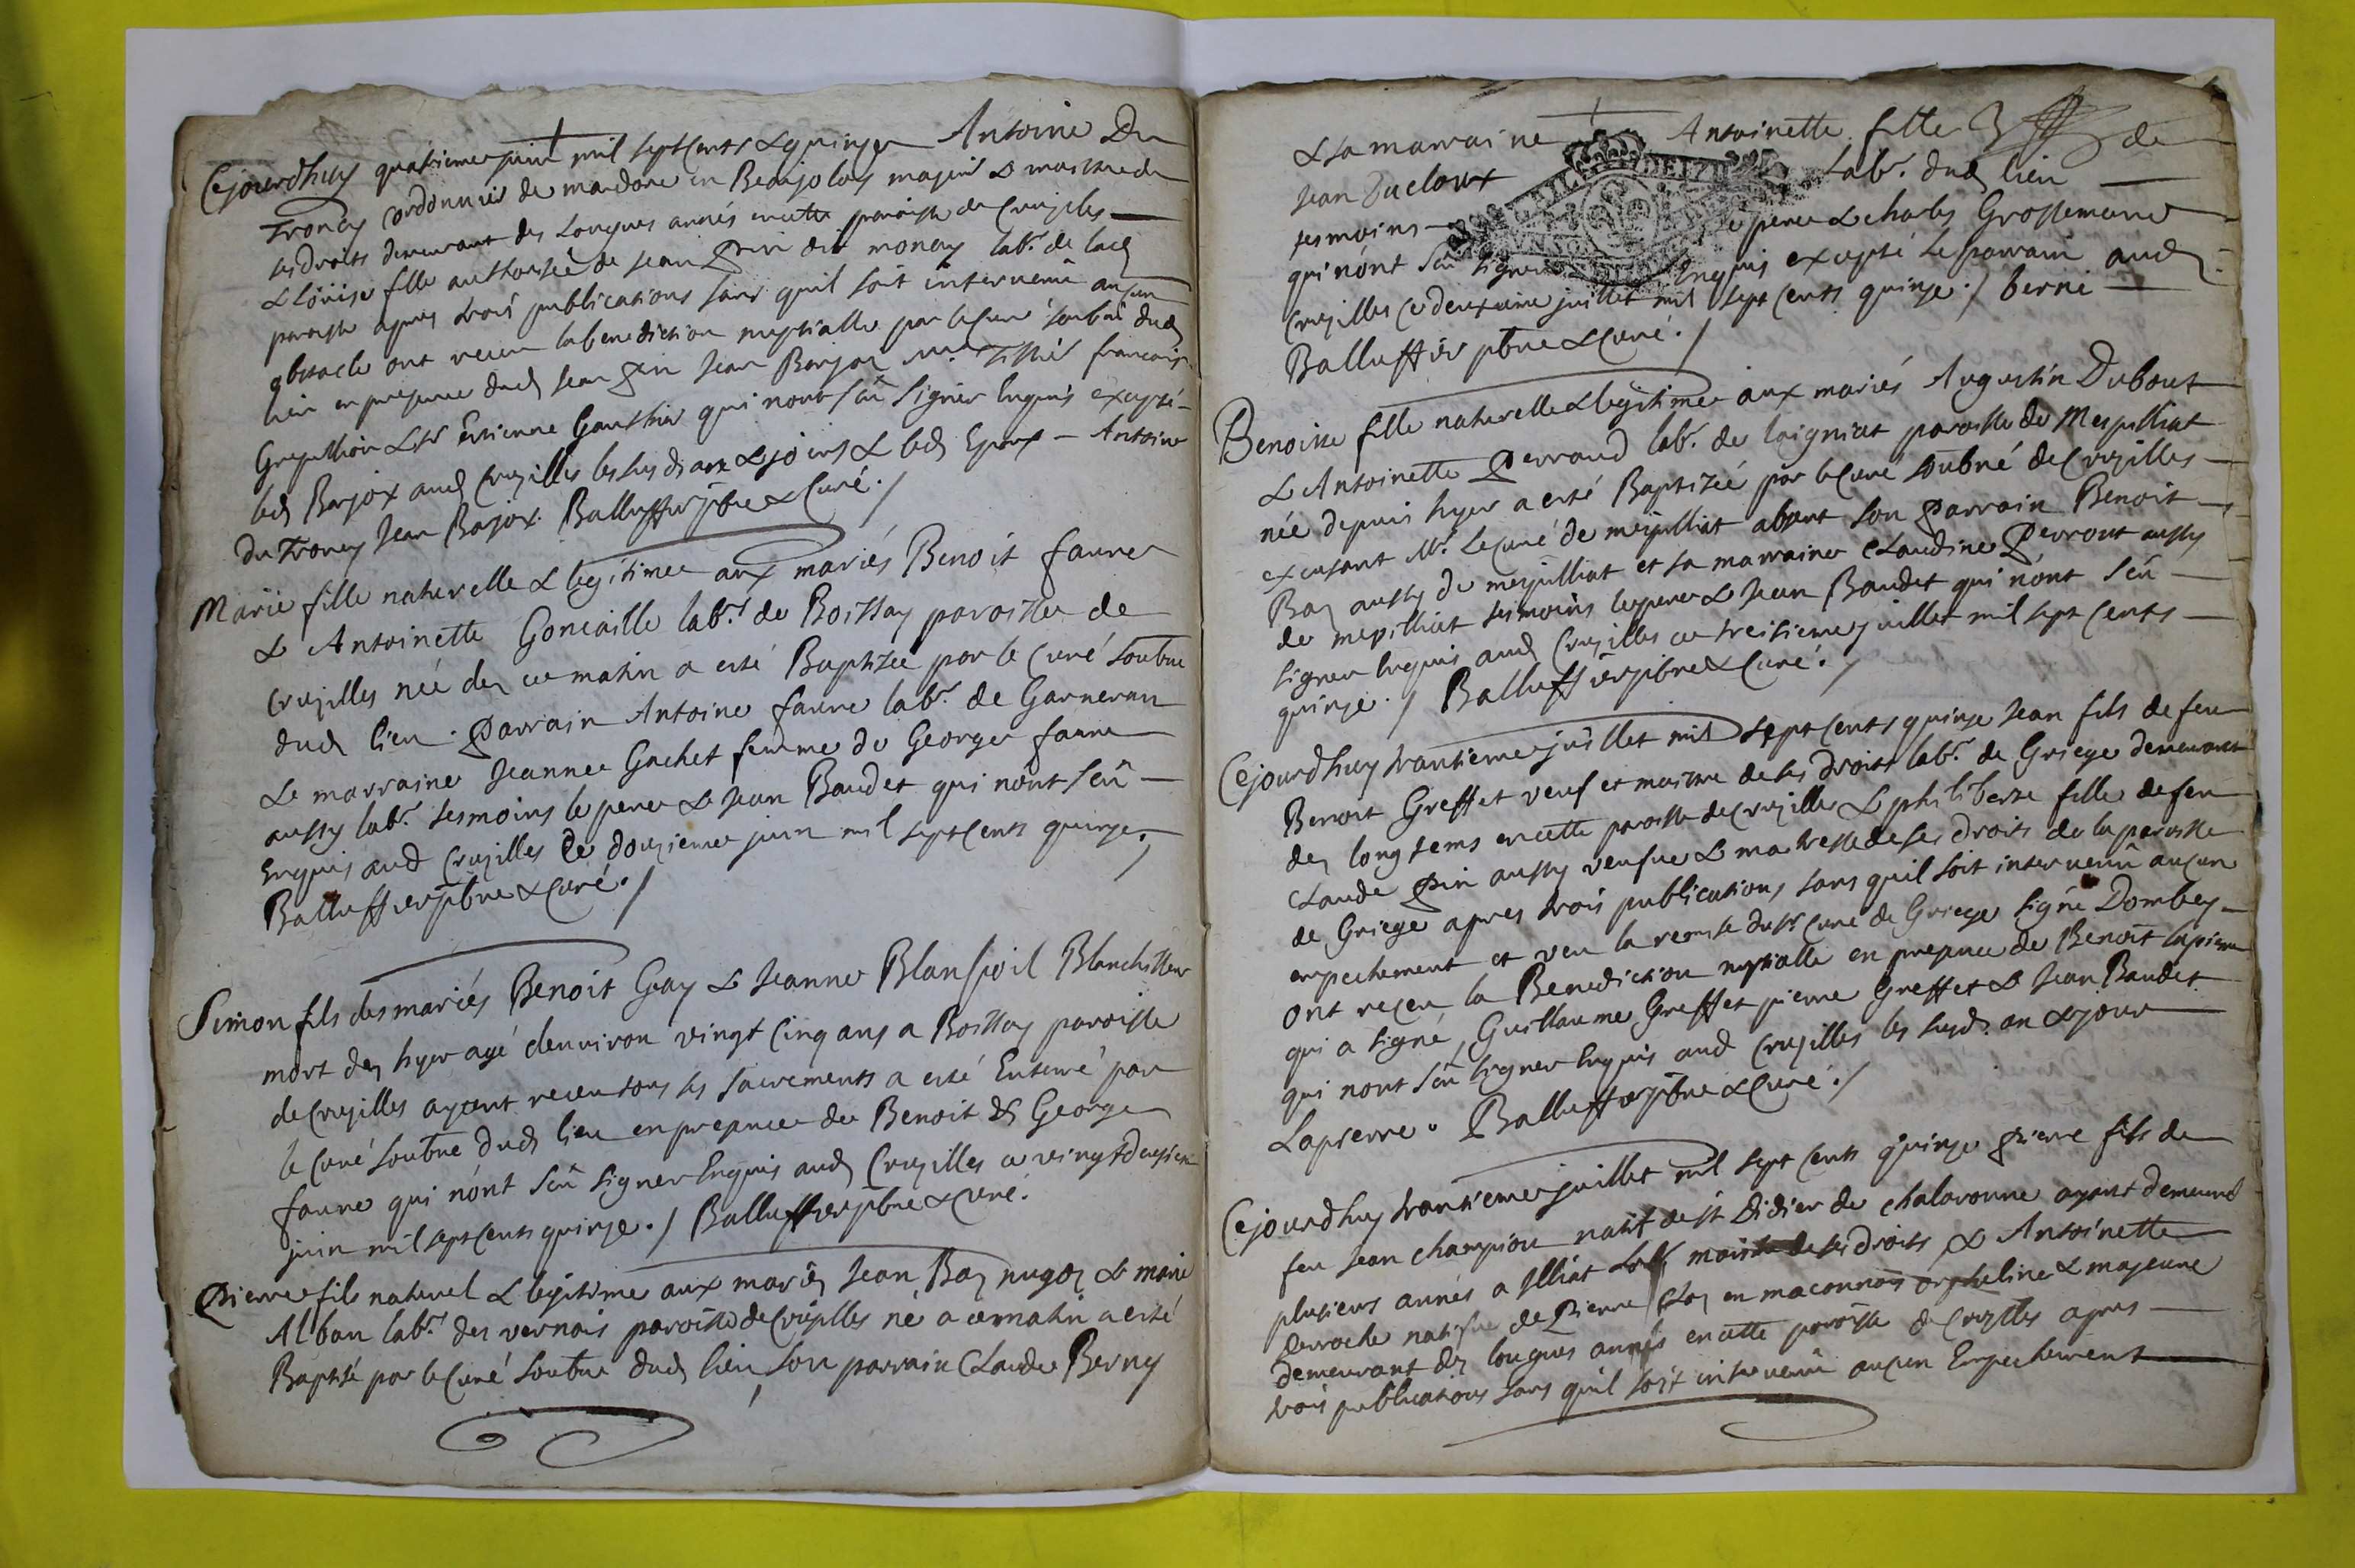 Cejourdhuy quatrieme juin mil sept cents & quinze Antoine Du
Troncy cordonnier de mardore en Beaujolois majeur & maistre de
ses droits demeurant des longues annés en cette paroisse de Cruzilles
& Loüise fille authorisée de Jean Pin dit moncey lab.r de lad
paroisse apres trois publications sans quil soit intervenû aucun
obstacle ont receu la benediction nuptialle par le curé soubné dud
lieu en presence dud Jean Pin Jean Barjox tissier francois
Greyullion & Sr Estienne Gauthier qui nont sçû signer Enquis excepté
led Barjox aud Cruzilles les susd an & jours & led Epoux - Antoine
Du Troncy Jean Barjox. Balluffier pbre & Curé ./
Marie fille naturelle & legitime aux mariés Benoit faure
& Antoinette Goncaille lab.r de Boissay paroisse de
Cruzilles née dez ce matin a esté Baptizée par le Curé soubne
dud lieu. Parrain Antoine faure lab.r de Garneran
& marraine Jeanne Gachet femme de George faure
aussy lab.r tesmoins le pere & Jean Baudet qui nont sçû
Enquis aud Cruzilles ce douzieme juin mil sept cents quinze ./
Balluffier pbre & Curé ./
Simon fils des mariés Benoit Gay & Jeanne Blanfoil Blanchisseur
mort dez hyer agé denviron vingt cinq ans a Boissay paroisse
de Cruzilles ayant receu tous ses sacrements a esté Enterré par
le Curé soubne dud lieu en presence de Benoit & George
faure qui nont sçû signer Enquis aud Cruzilles ce vingt deuxieme
juin mil sept cents quinze ./ Balluffier pbre & Curé.
Pierre fils naturel & legitime aux mariez Jean Baz nugoz & marie
Alban lab.r des vernais paroisse de Cruzilles né a ce matin a esté
Baptisé par le Curé soubne dud lieu, son parrain Claude Berny
& sa marraine Antoinette fille de
Jean Duclour lab.r dud lieu
tesmoins pere & charles Grossemand
qui nont sçû signer Enquis excepté le parrain aud
Cruzilles ce deuxieme juillet mil sept cents quinze ./ berni
Balluffier pbre & Curé ./
Benoitte fille naturelle & legitime aux mariés Augustin Dubout
& Antoinette Perraud lab.r de laigniat paroisse de Mespilliat
née depuis hyer a esté Baptizée par le Curé soubné de Cruzilles
excusant Mr Le Curé de mezpilliat absent son parrain Benoit
Baz aussy de mezpilliat et sa marraine Claudine Perrout aussy
de mezpilliat tesmoins le pere & Jean Baudet qui nont sçû
signer Enquis aud Cruzilles ce treisieme juillet mil sept cents
quinze ./ Balluffier pbre & Curé ./
Cejourdhuy trantieme juillet mil sept cents quinze Jean fils de feu
Benoit Greffet veuf et maistre de ses droits lab.r de Griege demeurant
dez long tems en cette paroisse de Cruzilles & philiberte fille de feu
Claude Pin aussy veufue & maitresse de ses droits de la paroisse
de Griege apres trois publications sans quil soit intervenû aucun
empechement et veu la remise du Sr Curé de Griege signé Dombey
ont receu la Benediction nuptialle en presence de Benoit lapierre
qui a signé, Guillaume Greffet pierre Greffet & Jean Baudet
qui nont sçû signer Enquis aud Cruzilles les susd. an & jour
Lapierre. Balluffier pbre & Curé ./
Cejourdhuy trantieme juillet mil sept cents quinze pierre fils de
feu Jean champion natif de St Didier de chalaronne ayant demeuré
plusieurs annés a Illiat maistre de ses droits & Antoinette
derroche natifue de Pierre Cloz en maconnois orpheline & majeure
demeurant dez longues annés en cette paroisse de Cruzilles apres
trois publications sans quil soit intervenû aucun Empechement